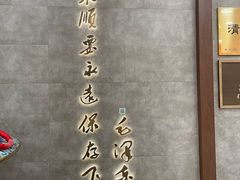 来顺要永远保存下
毛泽东
清